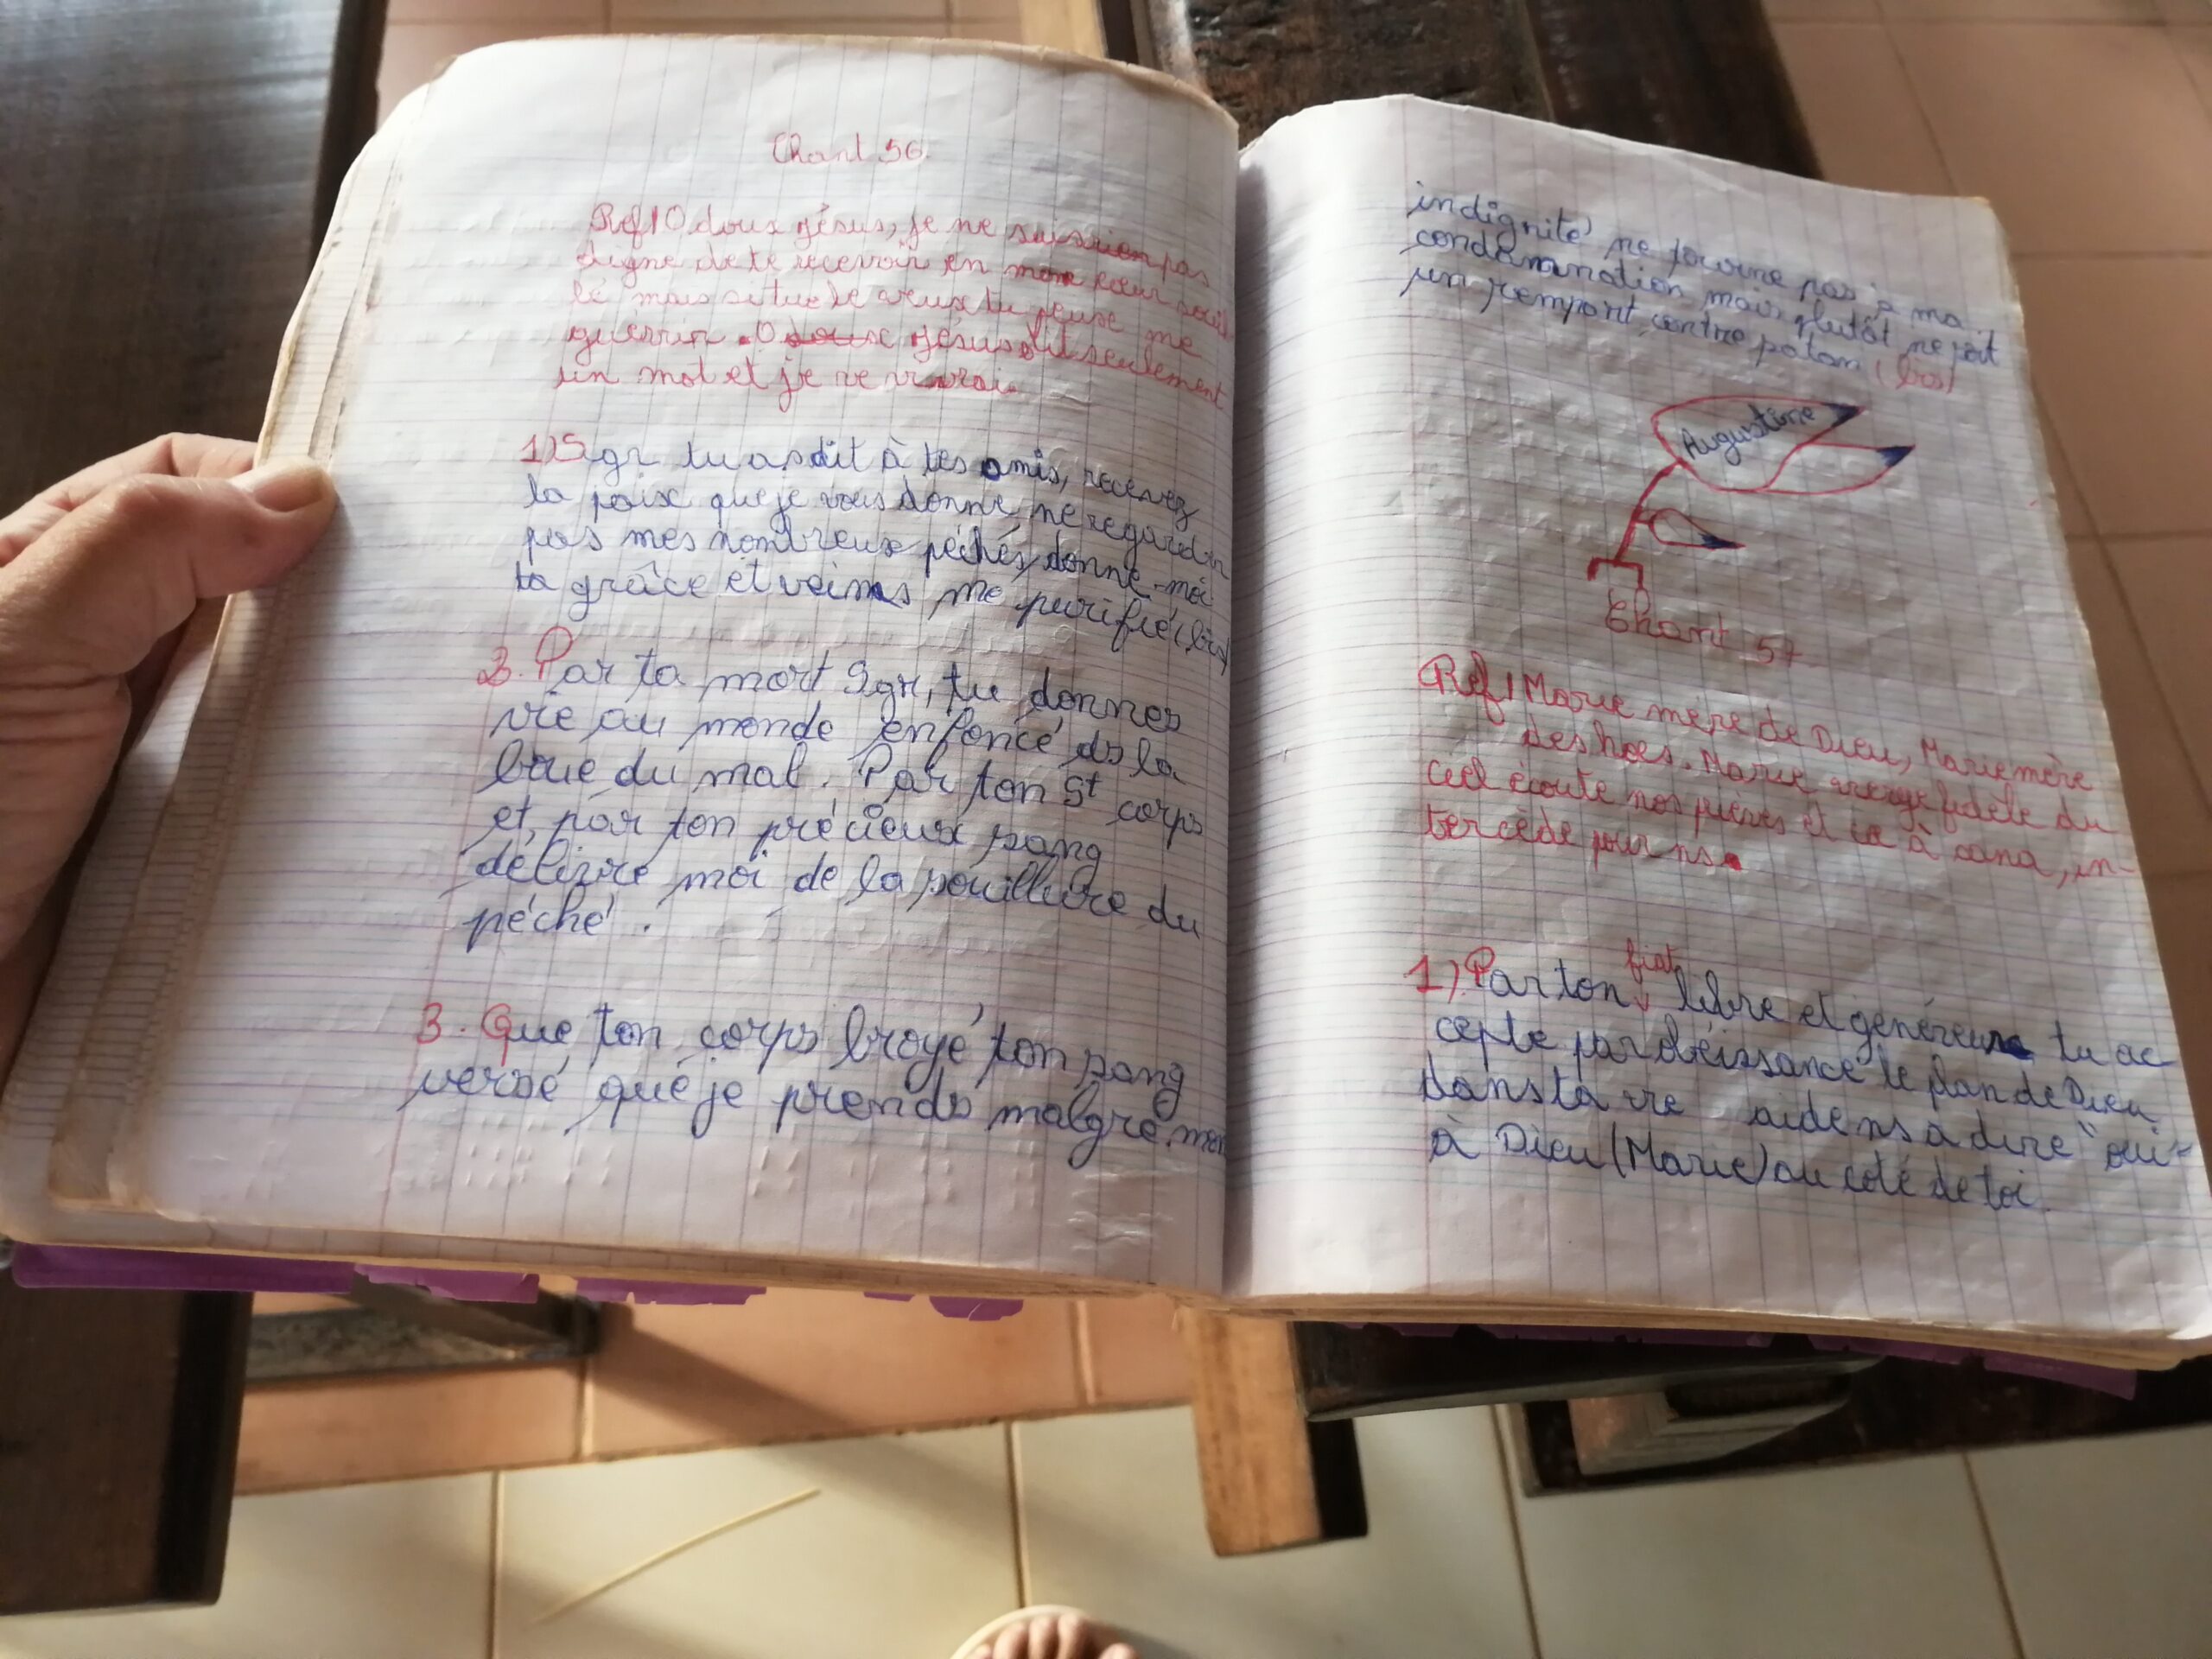 Chant 56.
Ref/ O doux Jésus, je ne suis rien pas
digne de te recevoir en mon cœur souil
lé mais si tu le veux tu peux me
guérrir. O doux Jésus dit seulement
un mot et je vivrai.
1) Sgr tu as dit à tes amis, recevez
la paix que je vous donne, ne regarde
pas mes nombreux péchés, donne-moi
ta grâce et veins me purifié (bis)
2. Par ta mort Sgr, tu donnes
vie au monde enfoncé ds la
boue du mal. Par ton St corps
et par ton précieux sang
délivre moi de la souillure du
péché.
3. Que ton corps broyé ton sang
versé que je prends malgré mon
indignité ne tourne pas à ma
condamnation mais plutôt ne soit
un rempart contre satan (bis)
Augustine
Chant 57
Ref/ Marie mère de Dieu, Marie mère
des hoes. Marie vierge fidèle du
ciel écoute nos prières et à cana, in-
tercède pour ns.
fiat
1) Par ton libre et généreux tu ac
cepte par obéissance le plan de Dieu
dans ta vie aide ns à dire "oui"
à Dieu (Marie) au coté de toi.